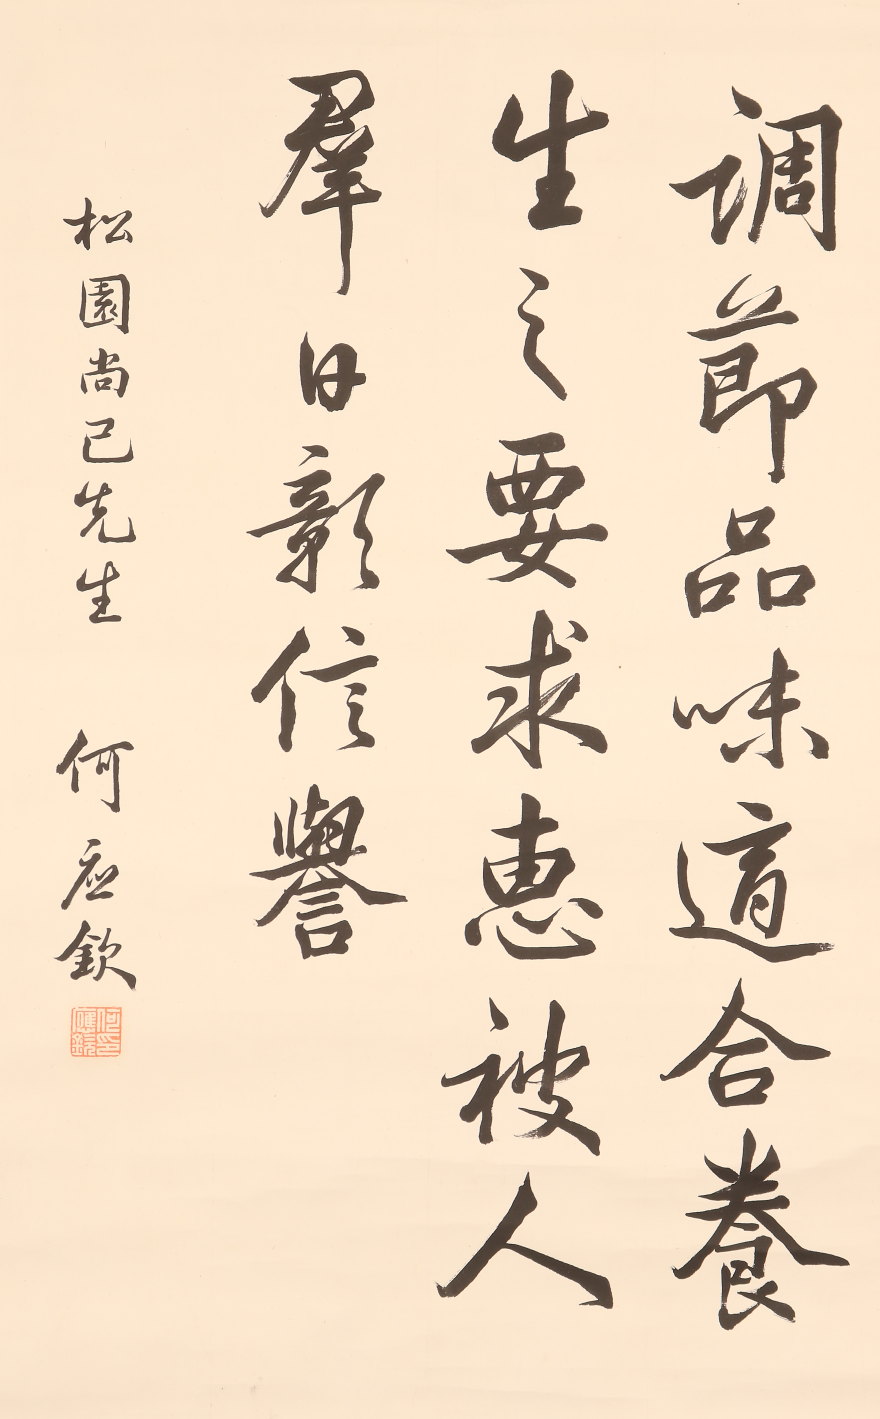 调節品味適合養
生之要求惠被人
羣日彰信譽
松園尚已先生 何应欽
何應欽印